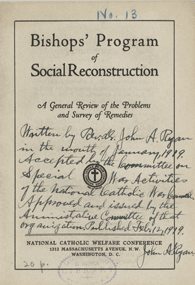 No. 13
Bishops' Program
of
Social Reconstruction
A General Review of the Problems
and Survey of Remedies
Written by Rev. Dr. John A. Ryan
in the month of January, 1919.
Accepted by the Committee on
Special War Activities
of the National Catholic War Council
Approved and issued by the
Administrative Committee of that
organization. Published Feb. 12, 1919.
NATIONAL CATHOLIC WELFARE CONFERENCE
1312 MASSACHUSETTS AVENUE, N.W.
WASHINGTON, D. C.
John A. Ryan